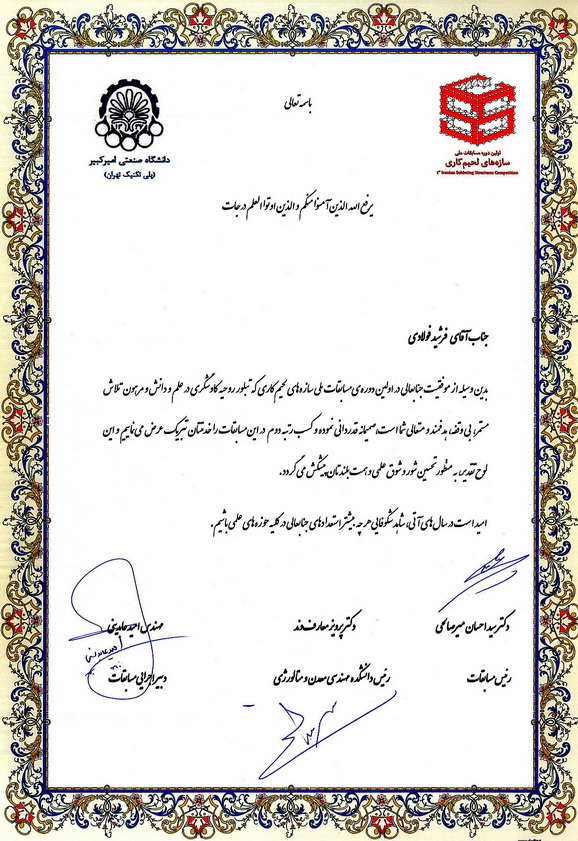 باسمه تعالی
اولین دوره مسابقات ملی
سازه‌های لحیم کاری
1st Iranian Soldering Structures Competition
دانشگاه صنعتی امیرکبیر
(پلی تکنیک تهران)
یرفع الله الذین آمنوا منکم و الذین اوتوا العلم درجات
جناب آقای فرشید فولادی
بدین وسیله از موفقیت جنابعالی در اولین دوره‌ی مسابقات ملی سازه‌های لحیم کاری که تبلور روحیه کاوشگری در علم و دانش و مرهون تلاش
مستمر، بی وقفه، هدفمند و متعالی شما است، صمیمانه قدردانی نموده و کسب رتبه دوم در این مسابقات را خدمتتان تبریک عرض می‌نماییم و این
لوح تقدیر، به منظور تحسین شور و شوق علمی و همت بلندتان پیشکش می‌گردد.
امید است در سال‌های آتی، شاهد شکوفایی هر چه بیشتر استعدادهای جنابعالی در کلیه حوزه‌های علمی باشیم.
دکتر سید احسان میرصالحی
دکتر پرویز معارف‌وند
مهندس احمد عابدینی
رئیس مسابقات
رئیس دانشکده مهندسی معدن و متالورژی
دبیر اجرایی مسابقات